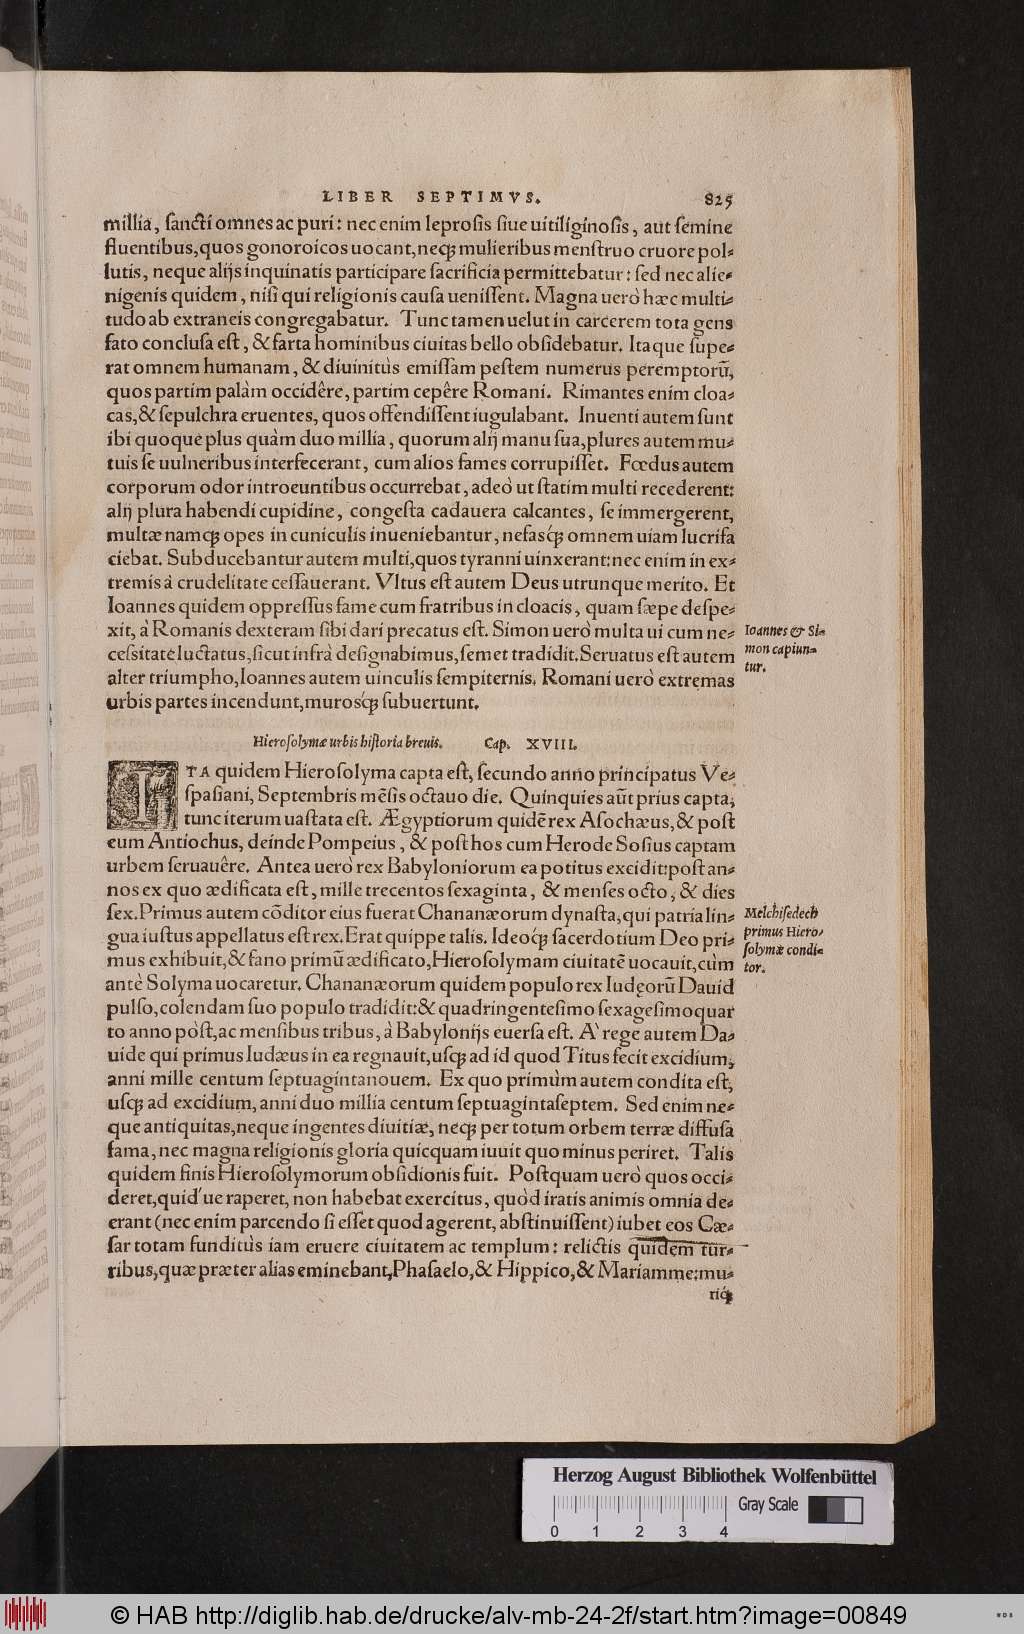 LIBER SEPTIMVS. 825
millia, sancti omnes ac puri: nec enim leprosis siue uitiliginosis, aut semine
fluentibus, quos gonoroicos uocant, neq; mulieribus menstruo cruore pol-
lutis, neque alijs inquinatis participare sacrificia permittebatur: sed nec alie-
nigenis quidem, nisi qui religionis causa uenissent. Magna uerò hæc multi-
tudo ab extraneis congregabatur. Tunc tamen uelut in carcerem tota gens
fato conclusa est, & farta hominibus ciuitas bello obsidebatur. Itaque supe-
rat omnem humanam, & diuinitùs emissam pestem numerus peremptorũ,
quos partim palàm occidêre, partim cepêre Romani. Rimantes enim cloa-
cas, & sepulchra eruentes, quos offendissent iugulabant. Inuenti autem sunt
ibi quoque plus quàm duo millia, quorum alij manu sua, plures autem mu-
tuis se uulneribus interfecerant, cum alios fames corrupisset. Fœdus autem
corporum odor introeuntibus occurrebat, adeò ut statim multi recederent:
alij plura habendi cupidine, congesta cadauera calcantes, se immergerent,
multæ namq; opes in cuniculis inueniebantur, nefasq́; omnem uiam lucri fa
ciebat. Subducebantur autem multi, quos tyranni uinxerant: nec enim in ex-
tremis à crudelitate cessauerant. Vltus est autem Deus utrunque merito. Et
Ioannes quidem oppressus fame cum fratribus in cloacis, quam sæpe despe-
xit, à Romanis dexteram sibi dari precatus est. Simon uerò multa ui cum ne-
cessitate luctatus, sicut infrà designabimus, semet tradidit. Seruatus est autem
alter triumpho, Ioannes autem uinculis sempiternis. Romani uerò extremas
urbis partes incendunt, murosq́; subuertunt.
Ioannes & Si-
mon capiun-
tur.
Hierosolymæ urbis historia breuis. Cap. XVIII.
ITA quidem Hierosolyma capta est, secundo anno principatus Ve-
spasiani, Septembris mẽsis octauo die. Quinquies aũt prius capta,
tunc iterum uastata est. Ægyptiorum quidẽ rex Asochæus, & post
eum Antiochus, deinde Pompeius, & post hos cum Herode Sosius captam
urbem seruauêre. Antea uerò rex Babyloniorum ea potitus excidit: post an-
nos ex quo ædificata est, mille trecentos sexaginta, & menses octo, & dies
sex. Primus autem cõditor eius fuerat Chananæorum dynasta, qui patria lin-
gua iustus appellatus est rex. Erat quippe talis. Ideoq́; sacerdotium Deo pri-
mus exhibuit, & fano primũ ædificato, Hierosolymam ciuitatẽ uocauit, cùm
antè Solyma uocaretur. Chananæorum quidem populo rex Iudęorũ Dauid
pulso, colendam suo populo tradidit: & quadringentesimo sexagesimo quar
to anno pòst, ac mensibus tribus, à Babylonijs euersa est. A' rege autem Da-
uide qui primus Iudæus in ea regnauit, usq; ad id quod Titus fecit excidium,
anni mille centum septuagintanouem. Ex quo primùm autem condita est,
usq; ad excidium, anni duo millia centum septuagintaseptem. Sed enim ne-
que antiquitas, neque ingentes diuitiæ, neq; per totum orbem terræ diffusa
fama, nec magna religionis gloria quicquam iuuit quo minus periret. Talis
quidem finis Hierosolymorum obsidionis fuit. Postquam uerò quos occi-
deret, quid'ue raperet, non habebat exercitus, quòd iratis animis omnia de-
erant (nec enim parcendo si esset quod agerent, abstinuissent) iubet eos Cæ-
sar totam funditùs iam eruere ciuitatem ac templum: relictis quidem tur-
ribus, quæ præter alias eminebant, Phasaelo, & Hippico, & Mariamme: mu-
riq́;
Melchisedech
primus Hiero-
solymæ condi-
tor.
Herzog August Bibliothek Wolfenbüttel
Gray Scale
0 1 2 3 4
© HAB http://diglib.hab.de/drucke/alv-mb-24-2f/start.htm?image=00849